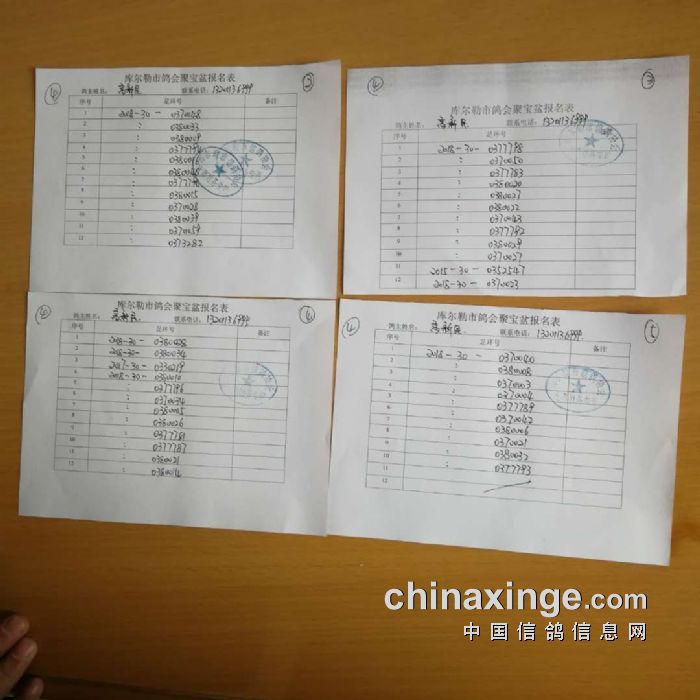 ④ ②
库尔勒市鸽会聚宝盆报名表
鸽主姓名: 高新民 联系电话:
序号 足环号 备注
1 2018-30-0370048
2 : 0380033
3 : 0380009
4
5
6
7
8 : 0380015
9 : 0370028
10 : 0380039
11 : 0370059
12 : 0373282
④ ③
库尔勒市鸽会聚宝盆报名表
鸽主姓名: 高新民 联系电话:
序号 足环号 备注
1 2018-30-0377788
2 : 0370050
3 : 0377783
4 : 0380020
5 : 0380027
6 : 0380022
7 : 0370043
8 : 0377792
9 : 0380029
10 : 0370027
11 2015-30-0352547
12 2018-30-0370023
④ ④
库尔勒市鸽会聚宝盆报名表
鸽主姓名: 高新民 联系电话:
序号 足环号 备注
1 2018-30-0380028
2 2018-30-0380034
3 2017-30-0330219
4 2018-30-0380010
5 : 0377796
6 : 0370034
7 : 0380005
8 : 0380026
9 : 0377781
10 : 0377787
11 : 0380021
12 : 0380014
④ ⑤
库尔勒市鸽会聚宝盆报名表
鸽主姓名: 高新民 联系电话:
序号 足环号 备注
1 2018-30-0370040
2 : 0380008
3 : 0370003
4 : 0370004
5 : 0377789
6 : 0370042
7 : 0380006
8 : 0370021
9 : 0380032
10 : 0377793
11
12
chinaxinge.com
中国信鸽信息网